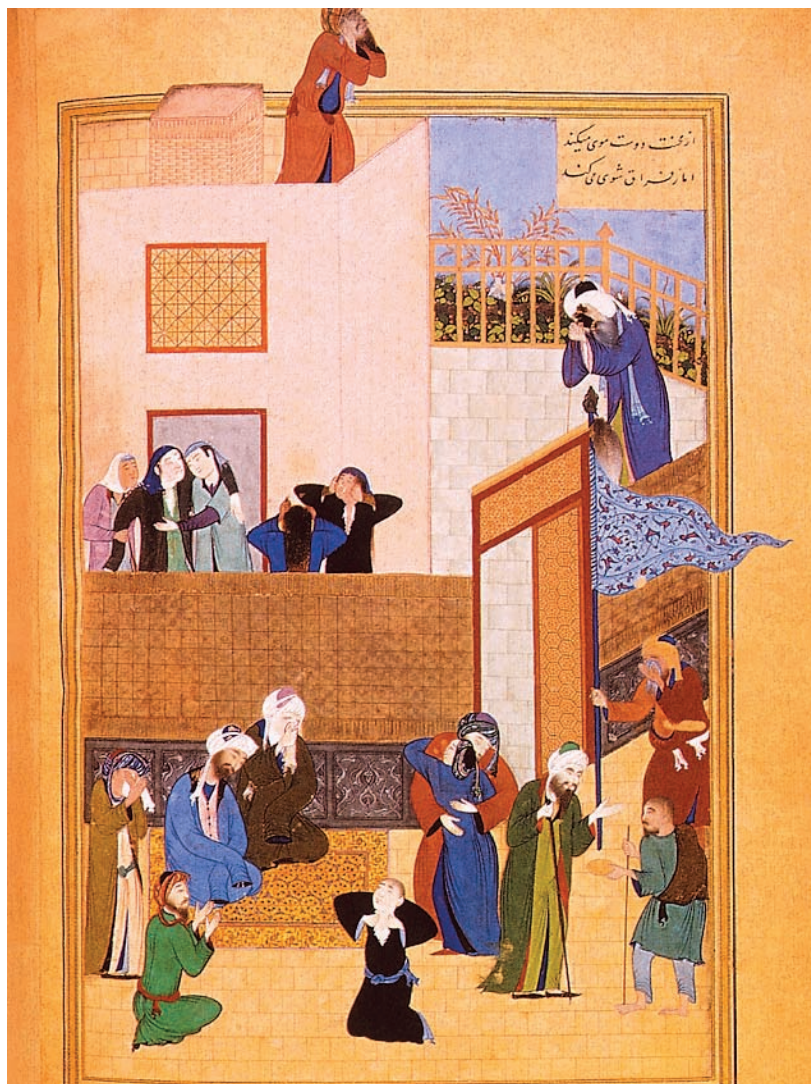 از محنت دوست موی میکند
اما ز فراق شوی می کند